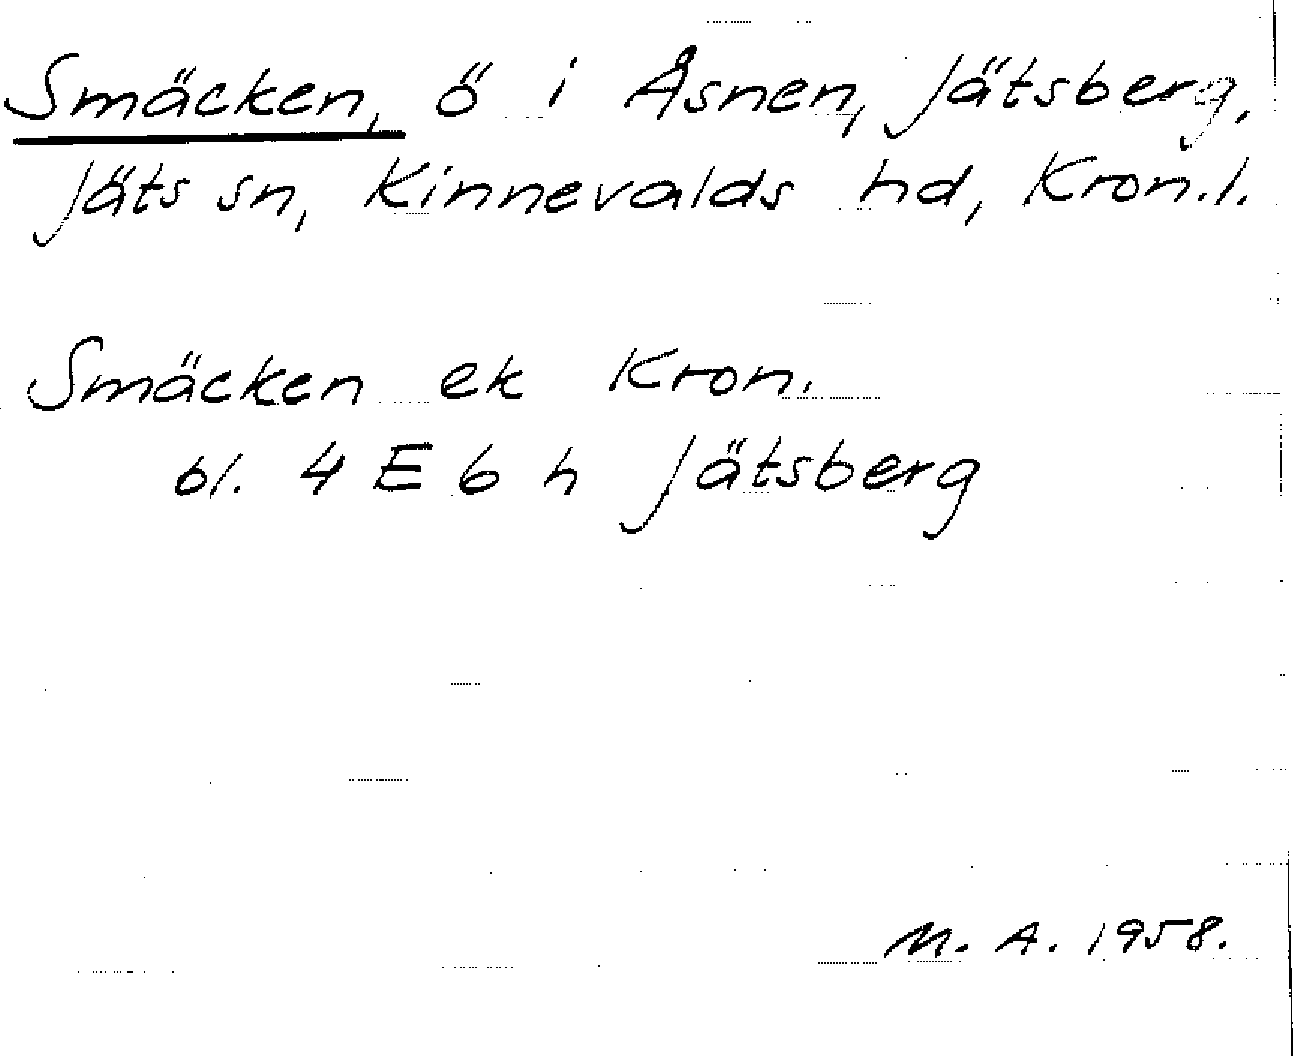 Smäcken, ö i Åsnen, Jätsberg,
Jäts sn, Kinnevalds hd, Kron.l.
Smäcken ek Kron.
bl. 4 E 6 h Jätsberg
M. A. 1958.